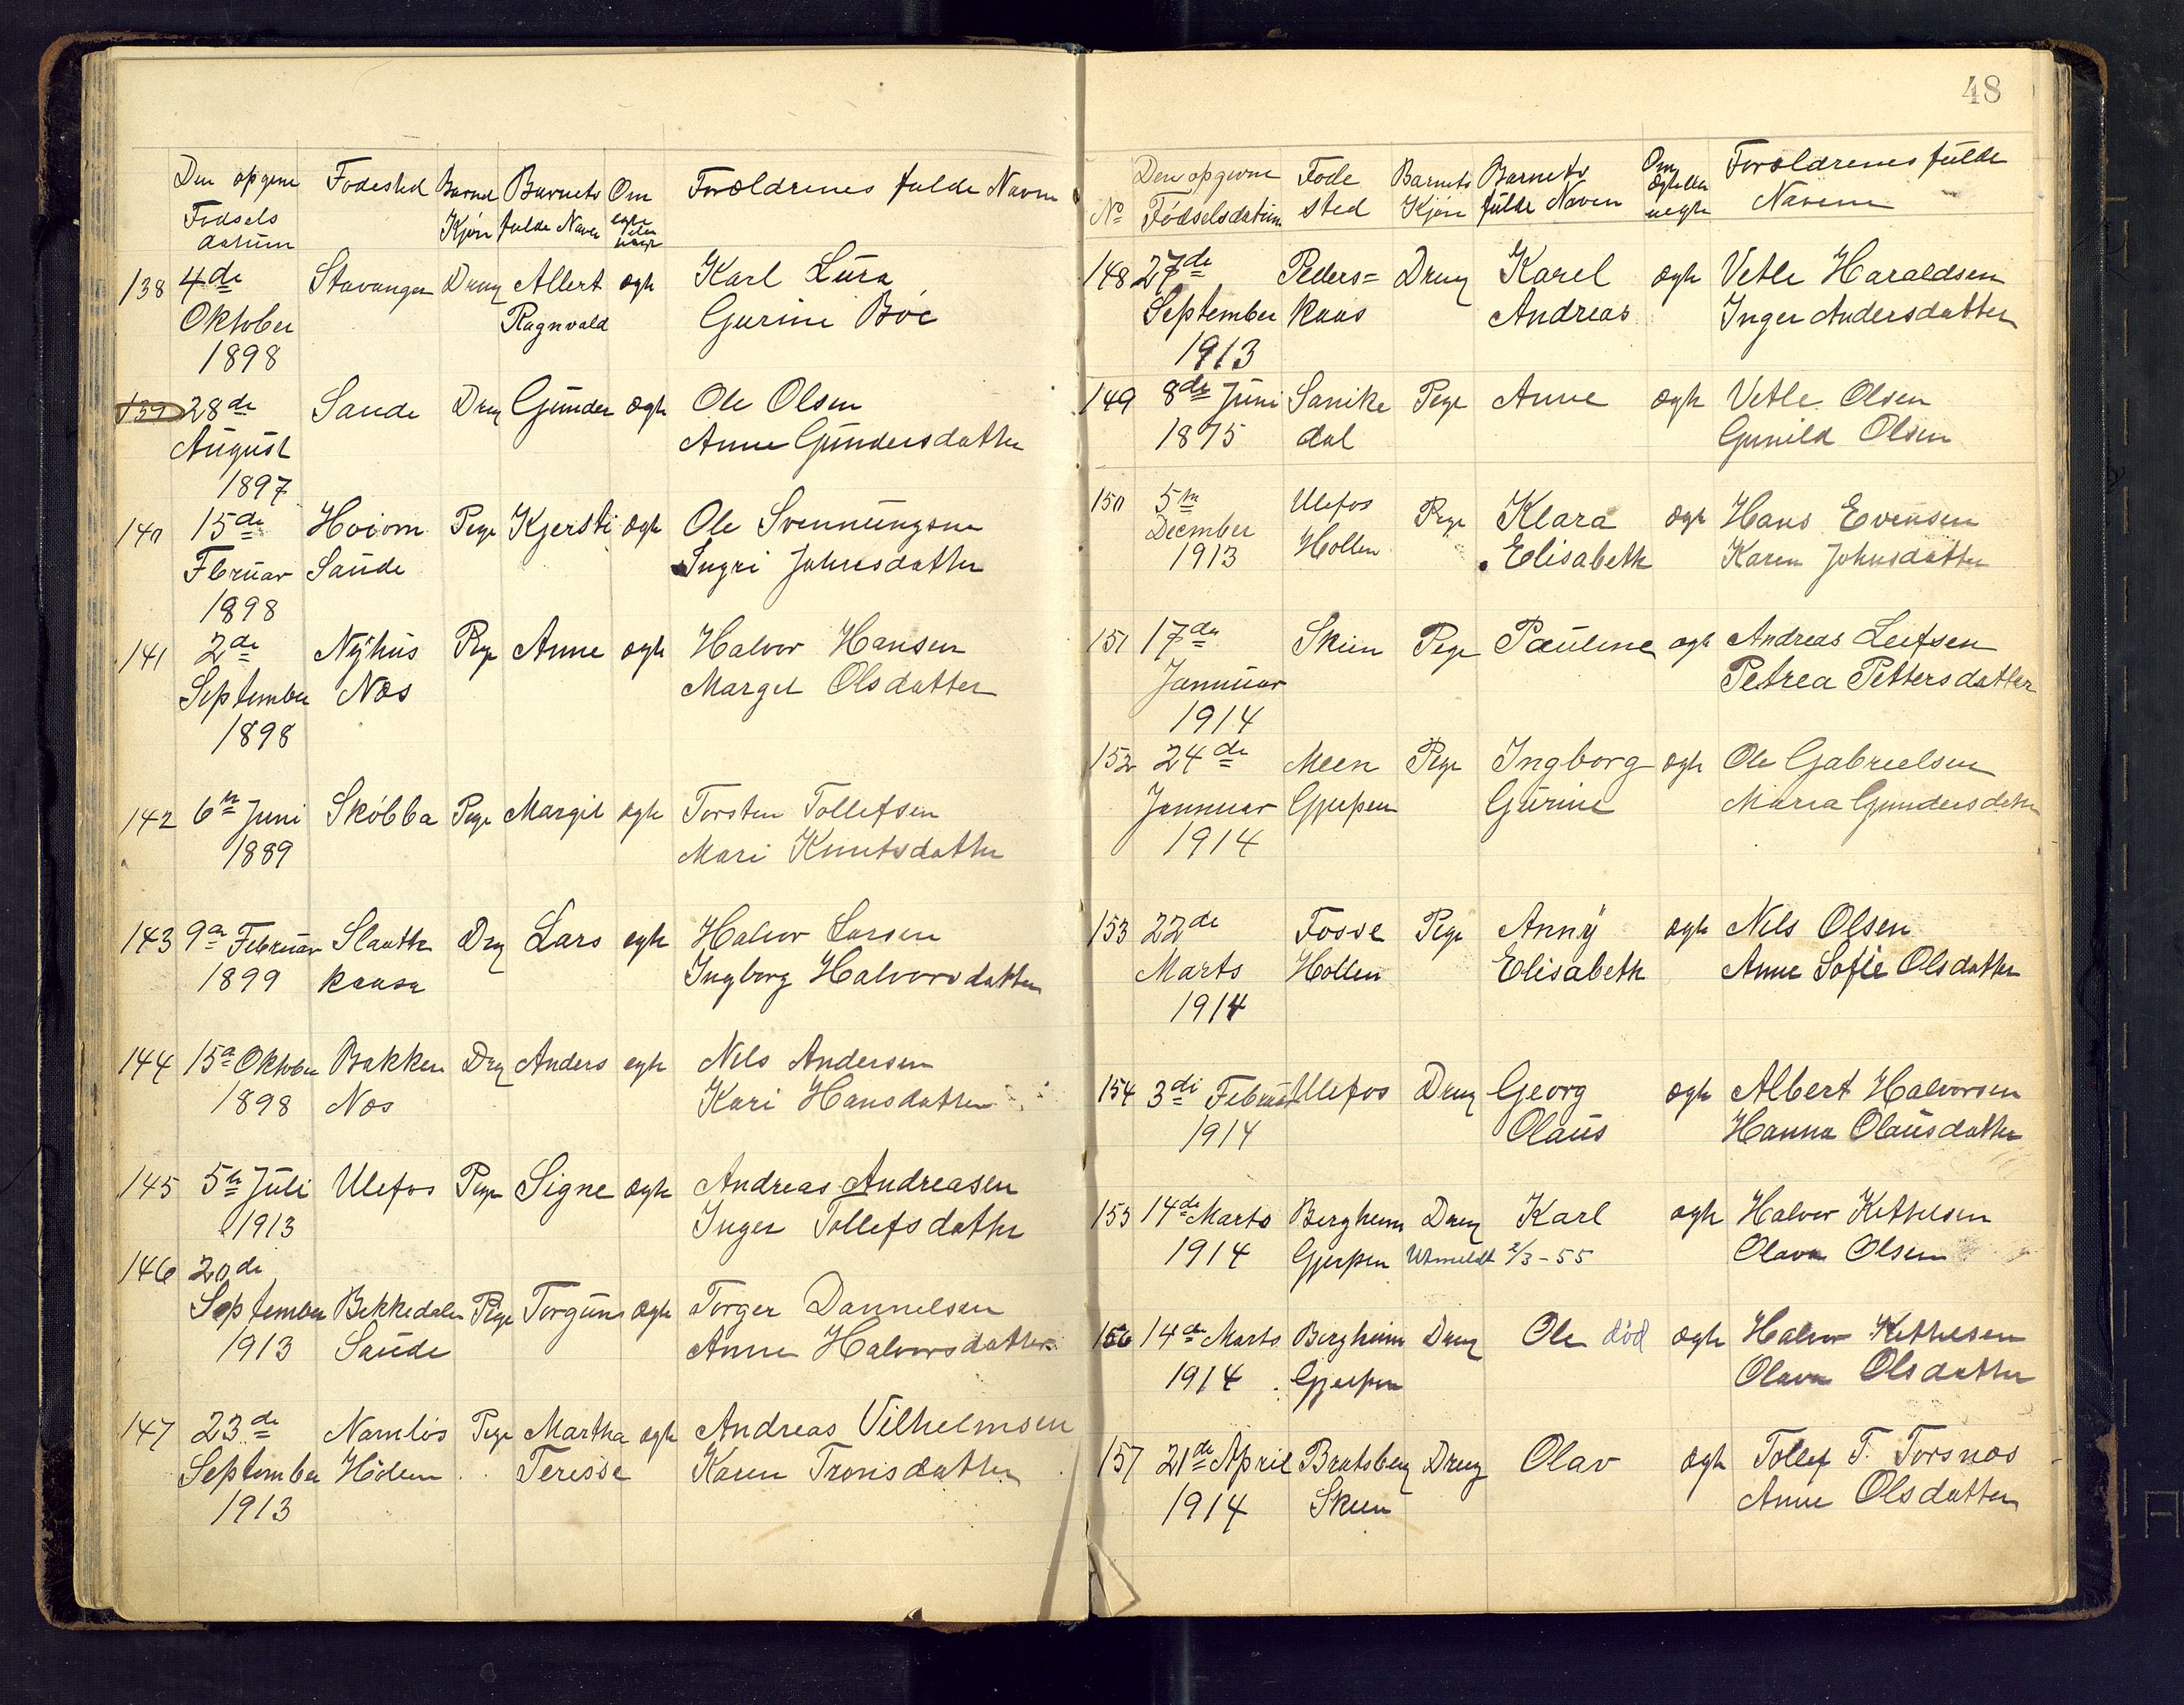 48
Den opgivne Fodested Barnets Barnets Om Forældrenes fulde Navne
Fodsels Kjøn fulde Navn egte eller uegte
datum
138 4de Stavanger Dreng Albert ægte Karl Lura
Oktober Ragnvald Gurine Böe
1898
139 28de Saude Dreng Gunder ægte Ole Olsen
August Anne Gundersdatter
1897
140 15de Hoiom Pege Kjersti ægte Ole Svennungsen
Februar Saude Ingri Johnsdatter
1898
141 2de Nyhus Pege Anne ægte Halvor Hansen
September Nes Margit Olsdatter
1898
142 6te Juni Skobba Pege Margit ægte Torsten Tollefsen
1889 Mari Knutsdatter
143 9de Februar Slaatte Dreng Lars egte Halvor Larsen
1899 kaasa Ingborg Halvorsdatter
144 15de Oktober Bakken Dreng Anders egte Nils Andersen
1898 Nes Kari Hansdatter
145 5te Juli Ulefos Pege Signe ægte Andreas Andreasen
1913 Inger Tollefsdatter
146 20de
September Bekkedalen Pege Torgun ægte Torger Dannelsen
1913 Saude Anne Halvorsdatter
147 23de Namløs Pege Martha ægte Andreas Vilhelmsen
September Hollen Teresse Karen Tronsdatter
1913
Den opgivne Fode Barnets Barnets Om Forældrenes fulde
No Fødselsdatum sted Kjön fulde Navn ægte eller uegte Navne
148 27de Peders= Dreng Karel ægte Vetle Haraldsen
September kaas Andreas Inger Andersdatter
1913
149 8de Juni Sanike Pege Anne ægte Vetle Olsen
1875 dal Gunild Olsen
150 5te Ulefos Pege Klara ægte Hans Evensen
December Hollen Elisabeth Karen Johnsdatter
1913
151 17de Skien Pege Pauline ægte Andreas Leifsen
Januar Petrea Pettersdatter
1914
152 24de Meen Pege Ingborg ægte Ole Gabrielsen
Januar Gjerpen Gurine Maria Gundersdatter
1914
153 22de Fosse Pege Anny ægte Nils Olsen
Marts Hollen Elisabeth Anne Sofie Olsdatter
1914
154 3di Februar Ulefos Dreng Georg ægte Albert Halvorsen
1914 Olaus Hanna Olausdatter
155 14de Marts Bergheim Dreng Karl ægte Halvor Kethelsen
1914 Gjerpen Utmeldt 2/3-55 Olava Olsen
156 14de Marts Bergheim Dreng Ole död ægte Halvor Kethelsen
1914 Gjerpen Olava Olsdatter
157 21de April Bratsberg Dreng Olav ægte Tollef T. Torsnes
1914 Skien Anne Olsdatter